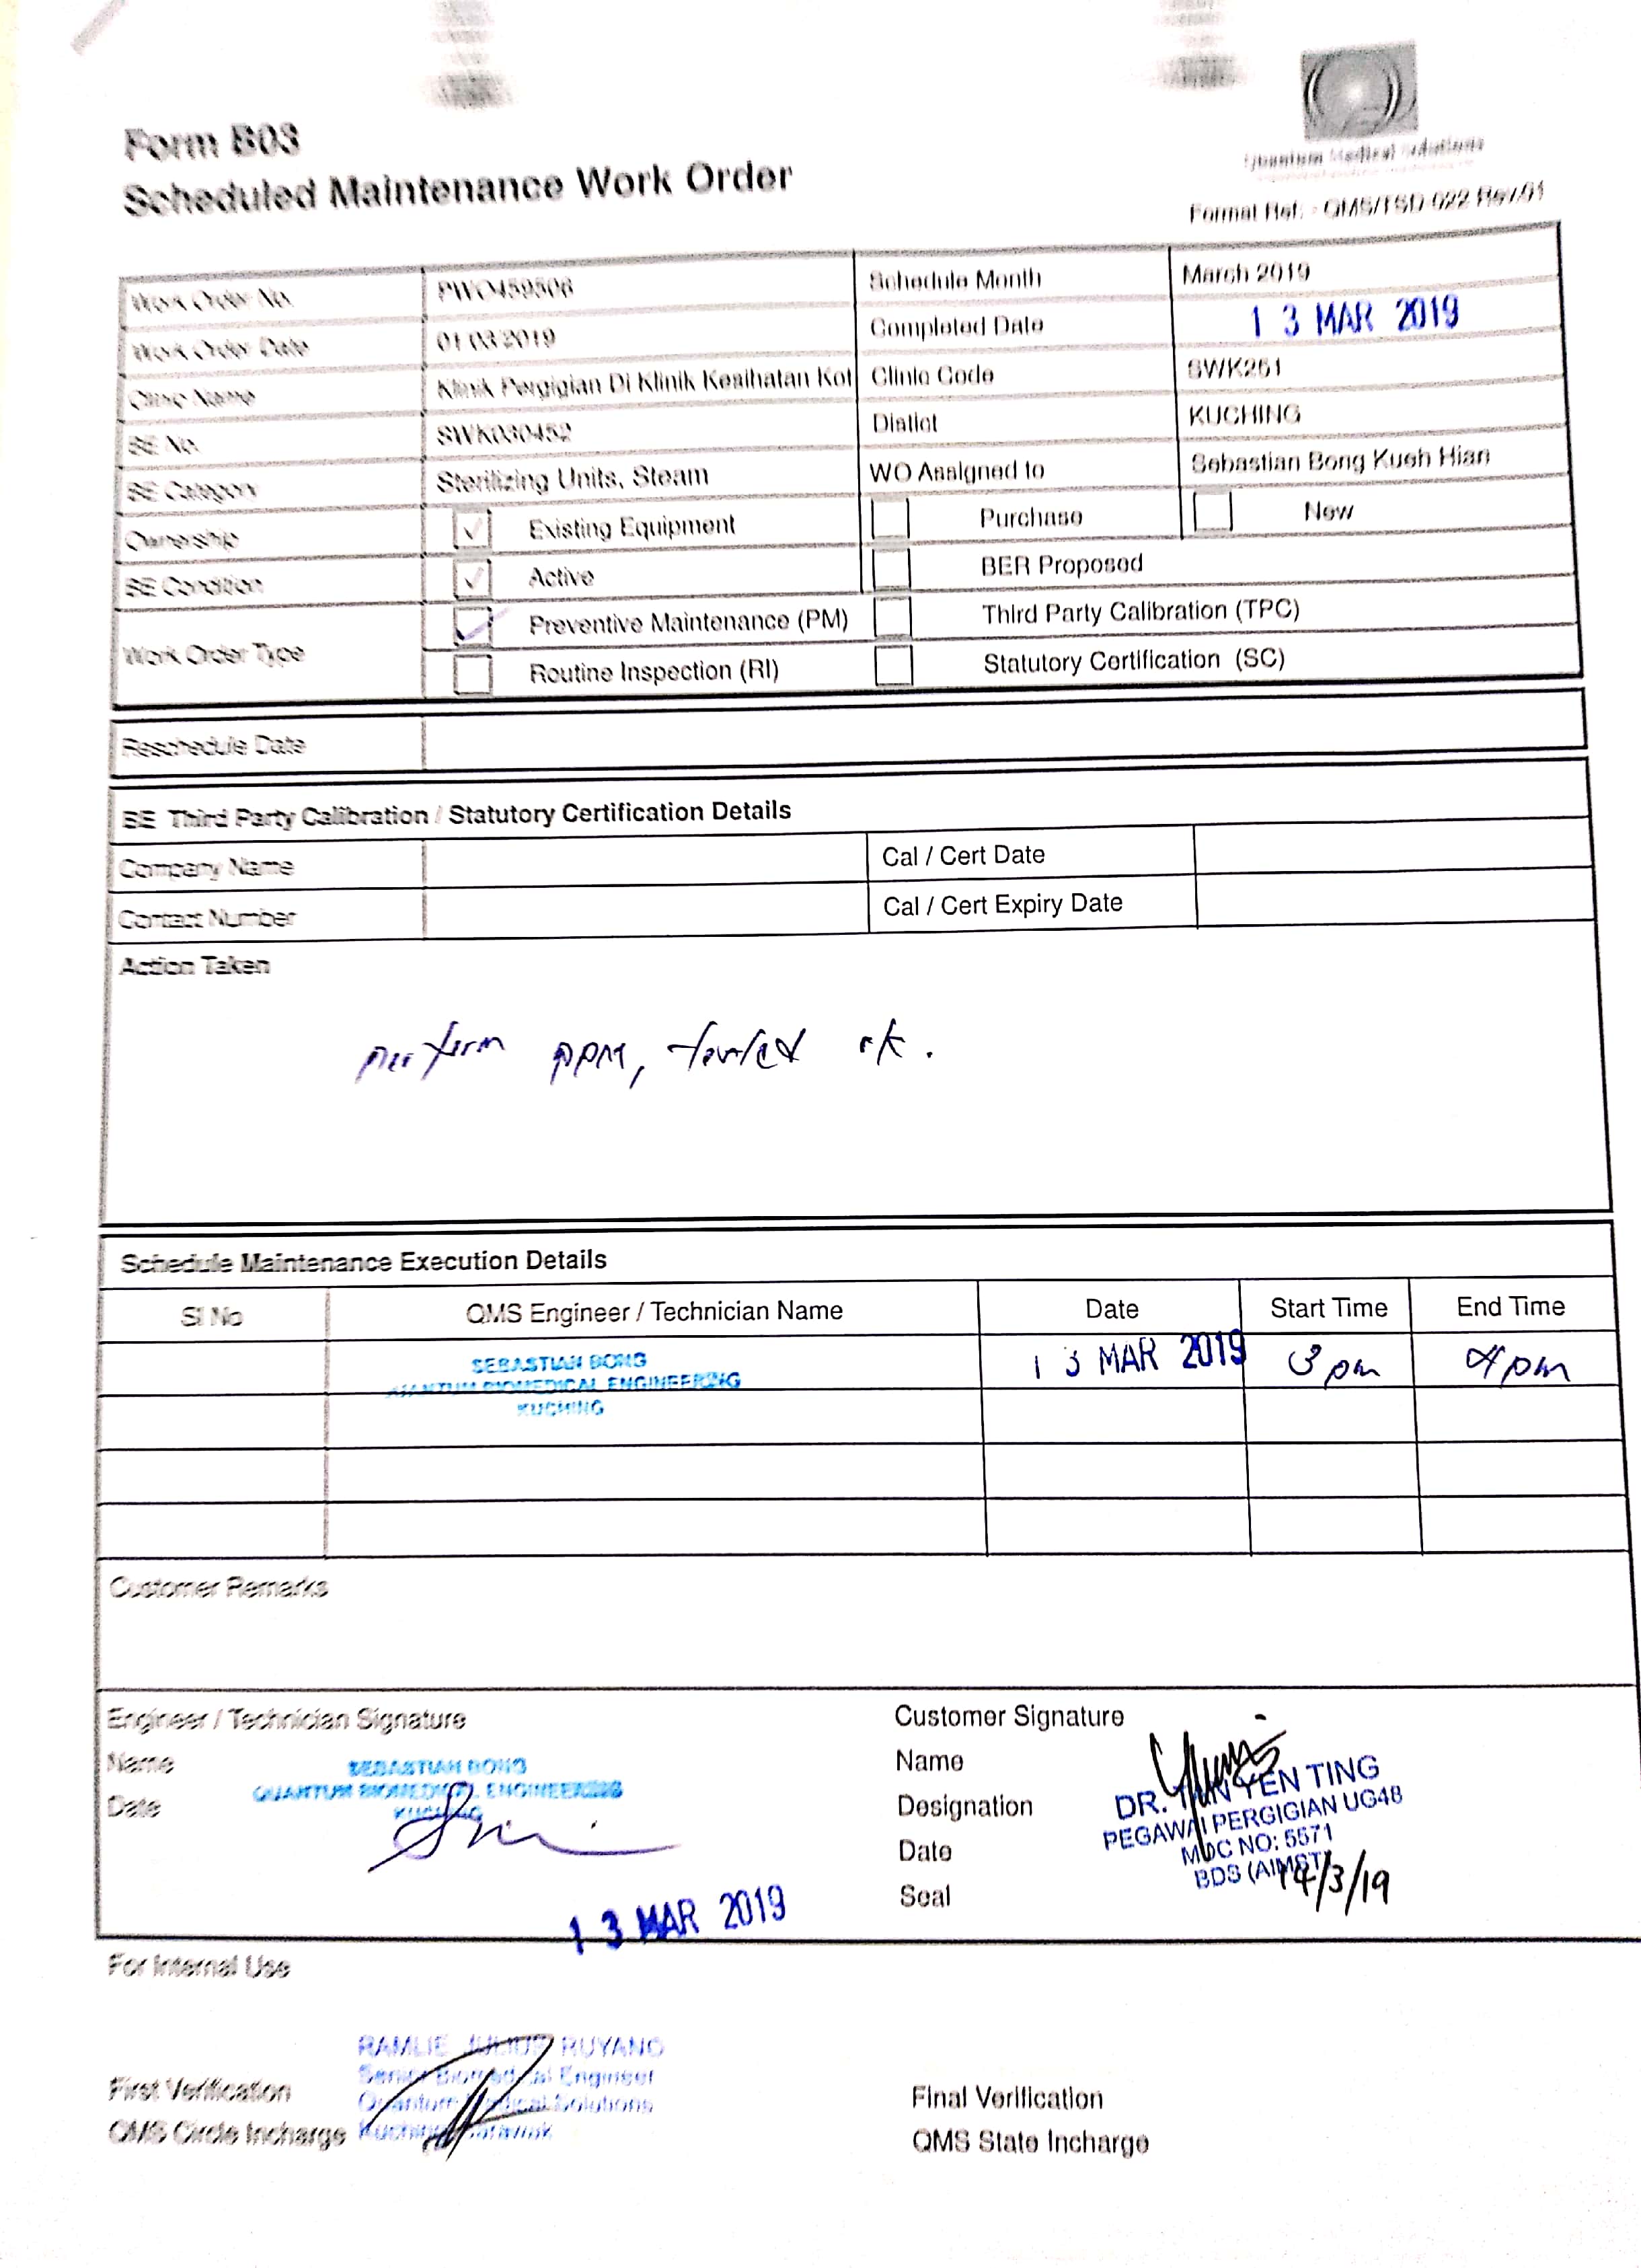 Form B03
Scheduled Maintenance Work Order
Quantum Medical Solutions
Format Ref. : QMS/TSD 022 Rev.01
Work Order No. PWO459506 Schedule Month March 2019
Work Order Date 01/03/2019 Completed Date 13 MAR 2019
Clinic Name Klinik Pergigian Di Klinik Kesihatan Kot Clinic Code SWK261
BE No. SWK030452 Distict KUCHING
BE Category Sterilizing Units, Steam WO Assigned to Sebastian Bong Kueh Hian
Ownership ✓ Existing Equipment Purchase New
BE Condition ✓ Active BER Proposed
Work Order Type ✓ Preventive Maintenance (PM) Third Party Calibration (TPC)
Routine Inspection (RI) Statutory Certification (SC)
Reschedule Date
BE Third Party Calibration / Statutory Certification Details
Company Name Cal / Cert Date
Contact Number Cal / Cert Expiry Date
Action Taken
perform PPM, tested ok.
Schedule Maintenance Execution Details
Sl No QMS Engineer / Technician Name Date Start Time End Time
SEBASTIAN BONG 13 MAR 2019 3pm 4pm
QUANTUM BIOMEDICAL ENGINEERING
KUCHING
Customer Remarks
Engineer / Technician Signature Customer Signature
Name SEBASTIAN BONG Name
QUANTUM BIOMEDICAL ENGINEERING
Date KUCHING Designation
DR. TAN YEN TING
PEGAWAI PERGIGIAN UG48
Date MDC NO: 5571
BDS (AIMST)
Seal 14/3/19
13 MAR 2019
For Internal Use
RAMLIE JULIUS RUYANG
Senior Biomedical Engineer
First Verification Quantum Medical Solutions Final Verification
QMS Circle Incharge Kuching Sarawak QMS State Incharge